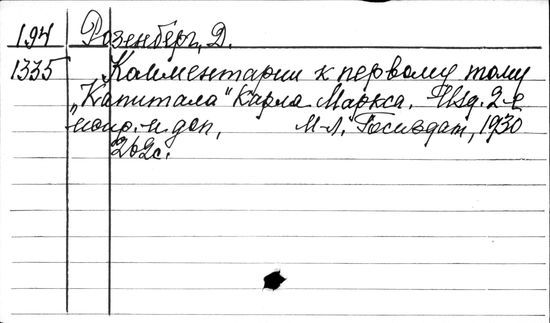 194 Розенберг, Д.
1335 Комментарии к первому тому
„Капитала" Карла Маркса. Изд. 2-е
испр. и доп., М-Л, Госиздат, 1930
262с.